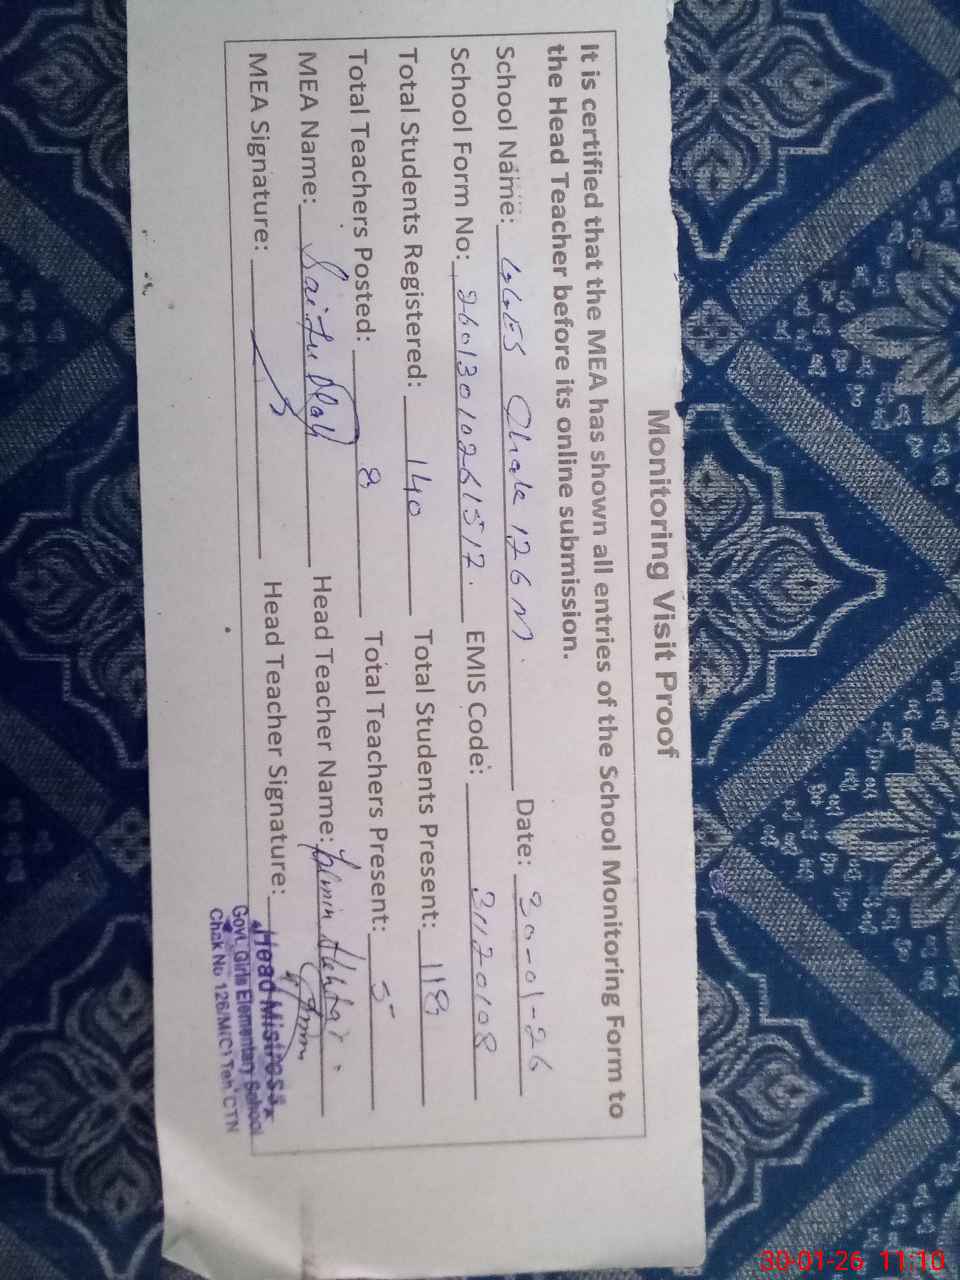 Monitoring Visit Proof
It is certified that the MEA has shown all entries of the School Monitoring Form to
the Head Teacher before its online submission.
School Name: GGES Chak 126 M. Date: 30-01-26
School Form No: 26013010261512. EMIS Code: 31120108
Total Students Registered: 140 Total Students Present: 118
Total Teachers Posted: 8 Total Teachers Present: 5
MEA Name: Saifullah Head Teacher Name: Akhtar
MEA Signature: Head Teacher Signature:
Head Mistress
Govt. Girls Elementary School
Chak No 126/M(C) Teh CTN
30-01-26 11:10